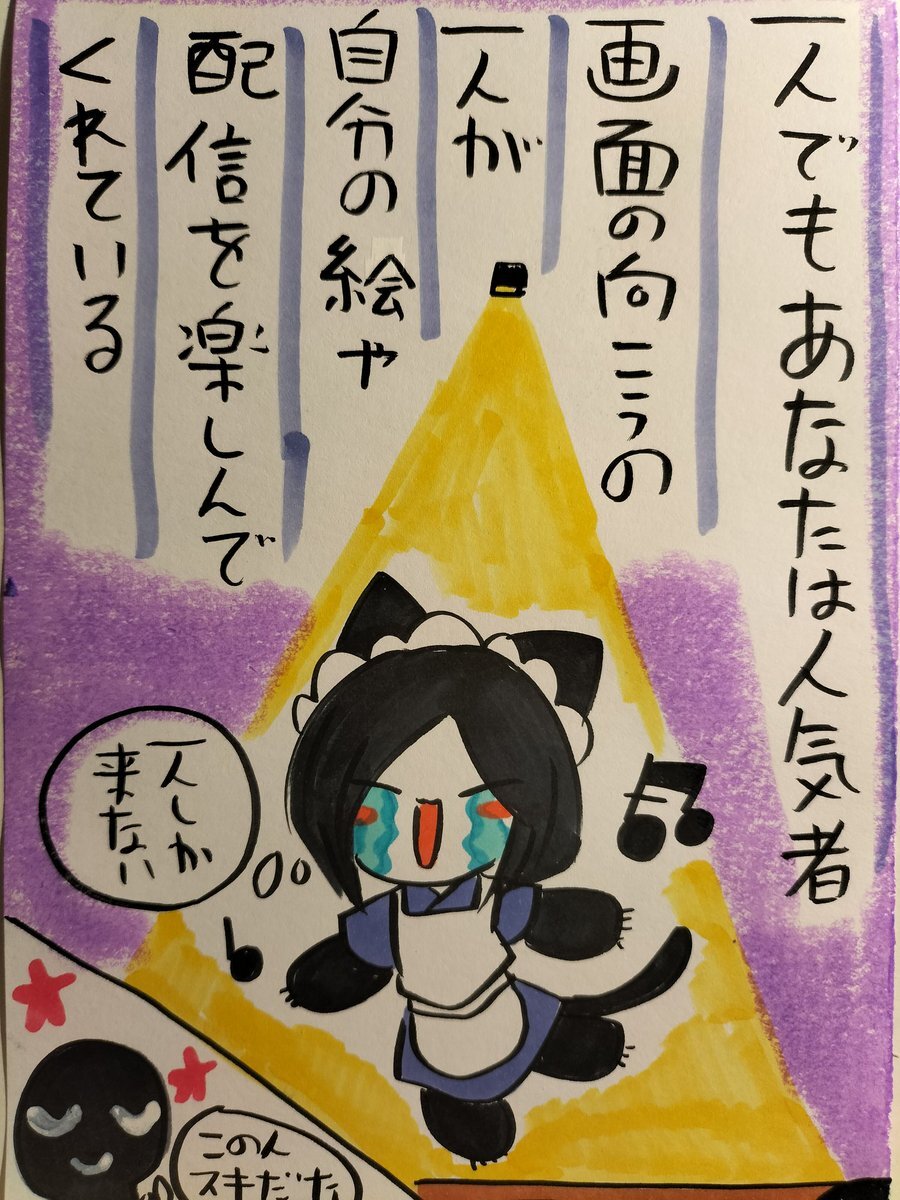 一人でもあなたは人気者
画面の向こうの
一人が
自分の絵や
配信を楽しんで
くれている
一人しか
来ない
この人
スキだな